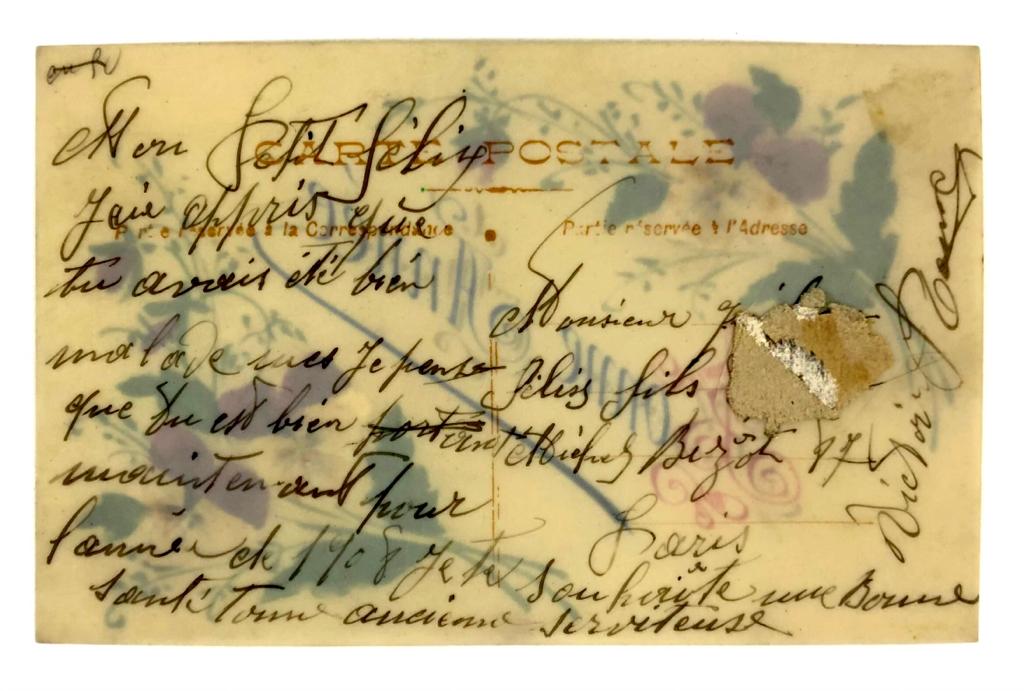 CARTE POSTALE
Partie réservée à la Correspondance
Partie réservée à l'Adresse
Mon Petit Félix
J'aie appris que
tu avais été bien
malade mes Je pense
que tu est bien portant
maintenant pour
l'année de 1908 Je te souhaite une Bonne
santé tonne ancienne serviteuse
Monsieur
Félix fils
Michel Bizot 97
Paris
Victoire
Bonne Année